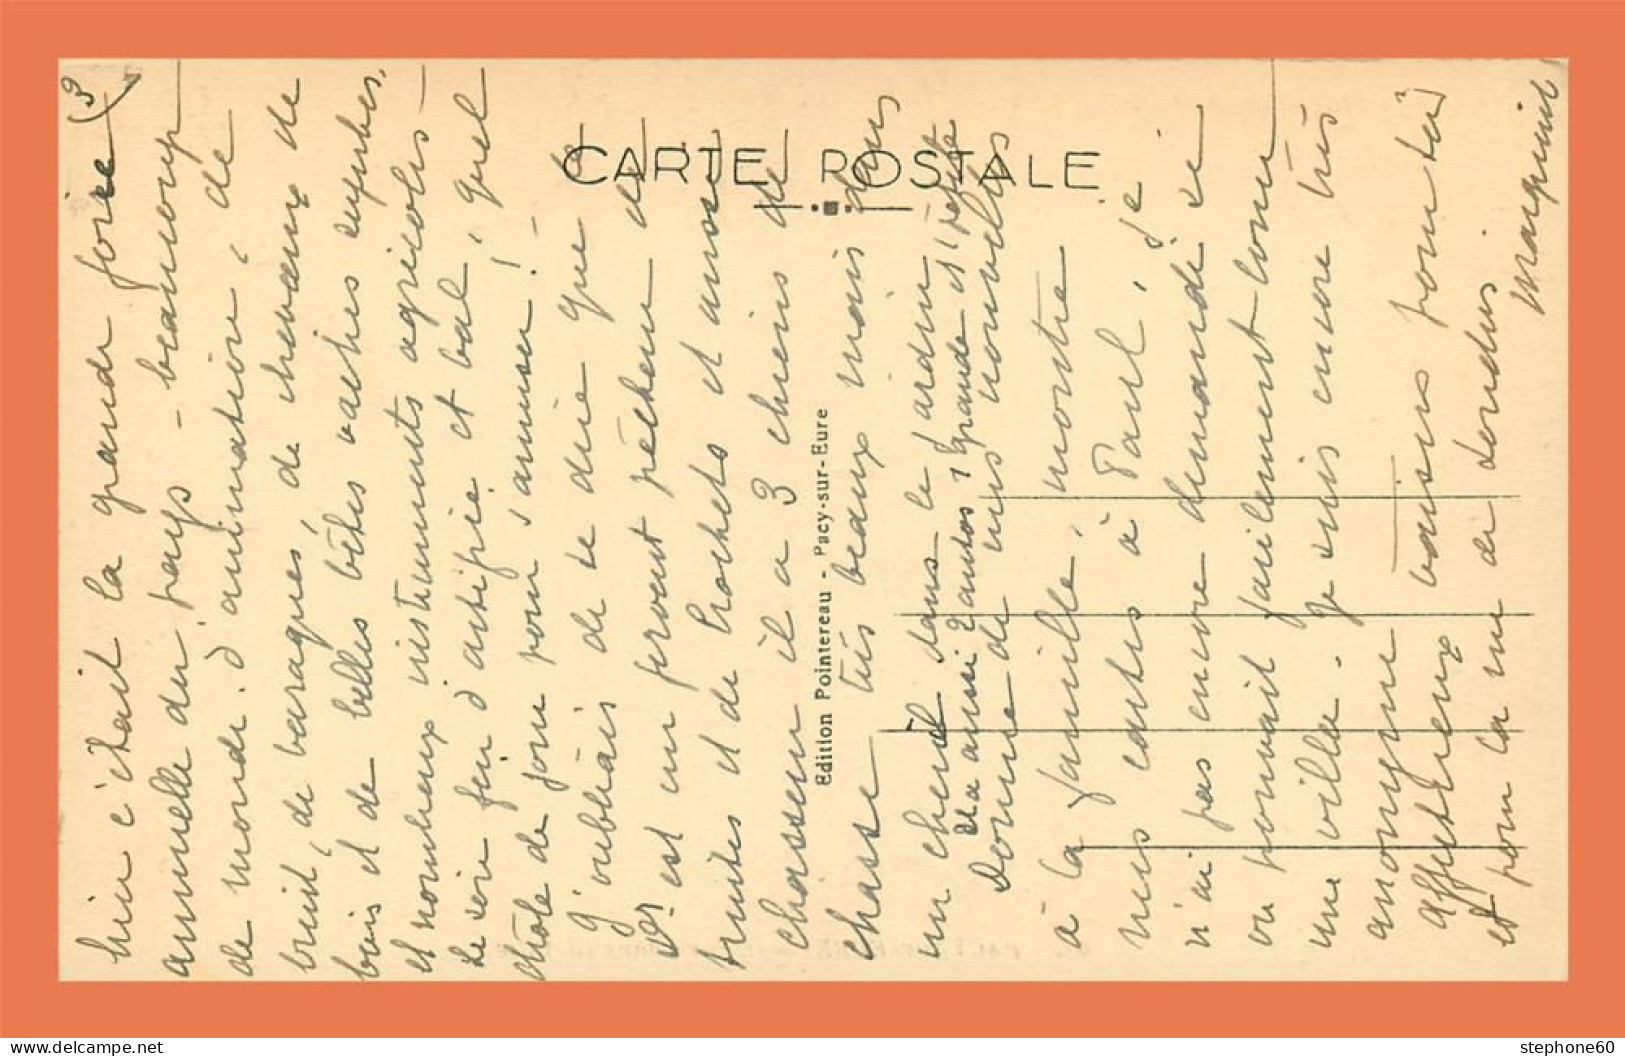 (3
hier c'était la grande foire
annuelle du pays - beaucoup
de monde. d'animation, de
bruit, de baraques, de chevaux de
bois et de belles bêtes vaches superbes,
et nombreux instruments agricoles -
le soir feu d'artifice et bal, quel
drôle de jour pour s'amuser! -
J'oubliais de te dire que le
Dr est un fervent pêcheur de
truites et de brochets et aussi
chasseur il a 3 chiens de
chasse très beaux mais dans
un chenil dans le jardin
il a aussi 2 autos 1 grande et 1 petite
Donne de mes nouvelles
à la famille, montre
mes cartes à Paul, je
n'ai pas encore demandé si
on pouvait facilement louer
une villa. je suis encore très
anonyme
affectueux baisers pour toi
et pour la
CARTE POSTALE
Edition Pointereau - Pacy-sur-Eure
stephone60